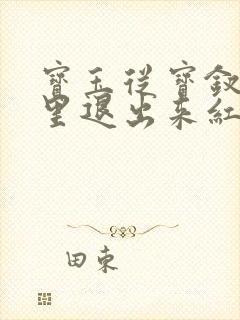 寶玉從寶釵
里退出來紅
田東